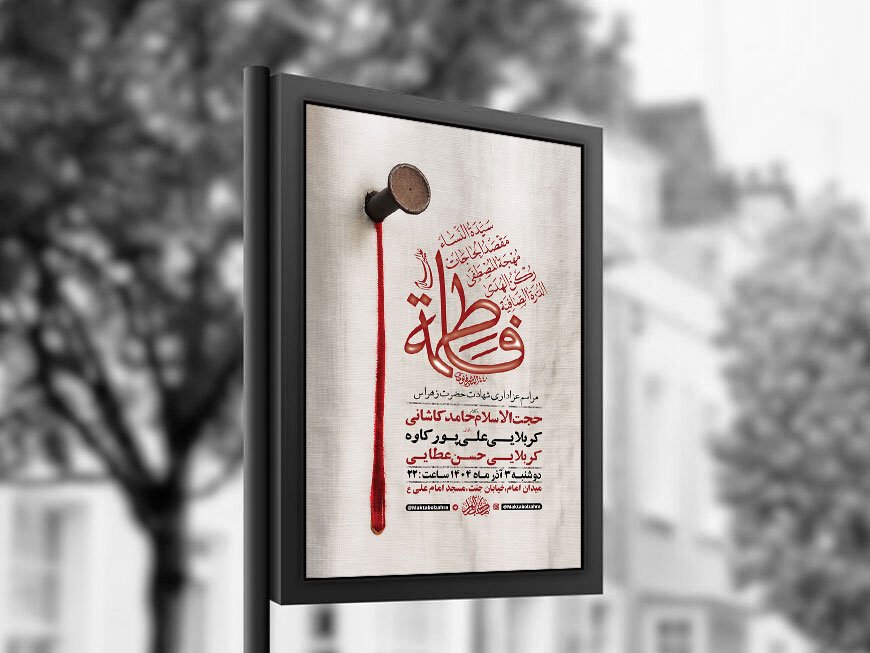 سَیِّدَةُ النِّسَاءِ
مَقْصَدُ الحَاجَات
مُهْجَةُ المُصْطَفَی
رُکْنُ الهُدَی
الدُرَّةُ الصَافِیَة
فاطمة
مراسم عزاداری شهادت حضرت زهرا س
حجت الاسلام حامد کاشانی
کربلایی علی پور کاوه
کربلایی حسن عطایی
دوشنبه ۳ آذر ماه ۱۴۰۴ ساعت: ۲۲
میدان امام، خیابان جنت، مسجد امام علی ع
@Maktabolzahra @Maktabolzahra